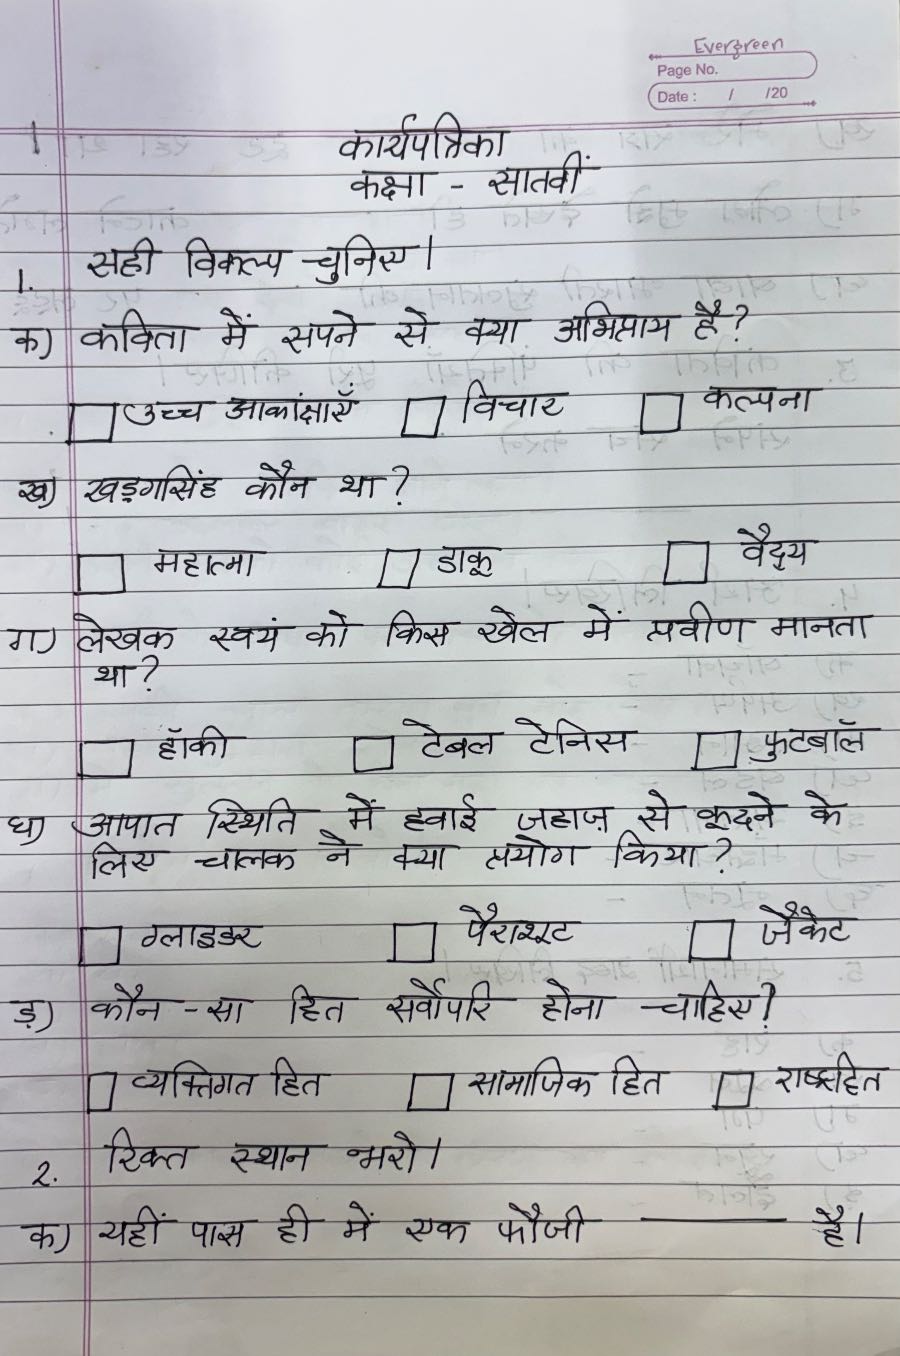 Evergreen
Page No.
Date : / /20
1
कार्यपत्रिका
कक्षा - सातवीं
1. सही विकल्प चुनिए।
क) कविता में सपने से क्या अभिप्राय है?
उच्च आकांक्षाएँ विचार कल्पना
ख) खड्गसिंह कौन था?
महात्मा डाकू वैद्य
ग) लेखक स्वयं को किस खेल में प्रवीण मानता
था?
हॉकी टेबल टेनिस फुटबॉल
घ) आपात स्थिति में हवाई जहाज़ से कूदने के
लिए चालक ने क्या प्रयोग किया?
ग्लाइडर पैराशूट जैकेट
ड़) कौन - सा हित सर्वोपरि होना चाहिए?
व्यक्तिगत हित सामाजिक हित राष्ट्रहित
2. रिक्त स्थान भरो।
क) यहीं पास ही में एक फौजी ______ है।